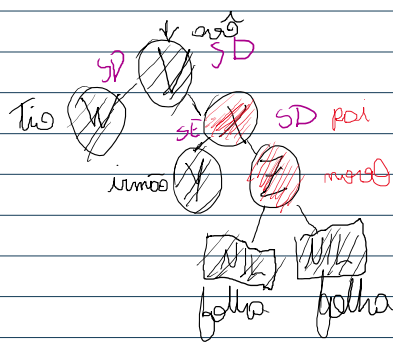 avô
SD
V
SD
Tio
W
X
SD
pai
SE
irmão
Y
Z
novo
NIL
NIL
folha
folha